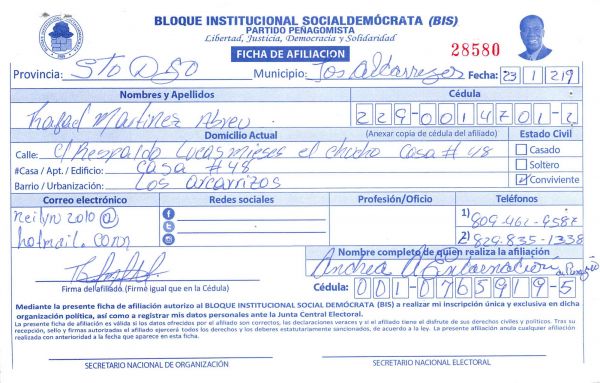 BLOQUE INSTITUCIONAL SOCIALDEMÓCRATA (BIS)
PARTIDO PEÑAGOMISTA
Libertad, Justicia, Democracia y Solidaridad
FICHA DE AFILIACIÓN
28580
Provincia: Sto Dgo Municipio: Los Alcarrizos Fecha: 23 1 219
Nombres y Apellidos Cédula
Rafael Martinez Abreu 229-0014701-2
Domicilio Actual (Anexar copia de cédula del afiliado) Estado Civil
Calle: C/ Respaldo Lucas mieses el chucho Casa # 48 Casado
#Casa / Apt. / Edificio: Casa # 48 Soltero
Barrio / Urbanización: Los arcarrizos Conviviente
Correo electrónico Redes sociales Profesión/Oficio Teléfonos
neilyn2010@ 1) 809-462-9587
hotmail.com 2) 829-835-1338
Nombre completo de quien realiza la afiliación
Andrea Encarnación
Firma del afiliado (Firme igual que en la Cédula) Cédula: 001-0765919-5
Mediante la presente ficha de afiliación autorizo al BLOQUE INSTITUCIONAL SOCIAL DEMÓCRATA (BIS) a realizar mi inscripción única y exclusiva en dicha
organización política, así como a registrar mis datos personales ante la Junta Central Electoral.
La presente ficha de afiliación es válida si los datos ofrecidos por el afiliado son correctos, las declaraciones veraces y si el afiliado tiene el disfrute de sus derechos civiles y políticos. Tras su
recepción, sello y firmas autorizadas el afiliado ejercerá todos los derechos y los deberes estatutariamente sancionados, de acuerdo a la ley. La presente afiliación anula cualquier afiliación
realizada con anterioridad a la fecha que aparece en esta ficha.
SECRETARIO NACIONAL DE ORGANIZACIÓN SECRETARIO NACIONAL ELECTORAL